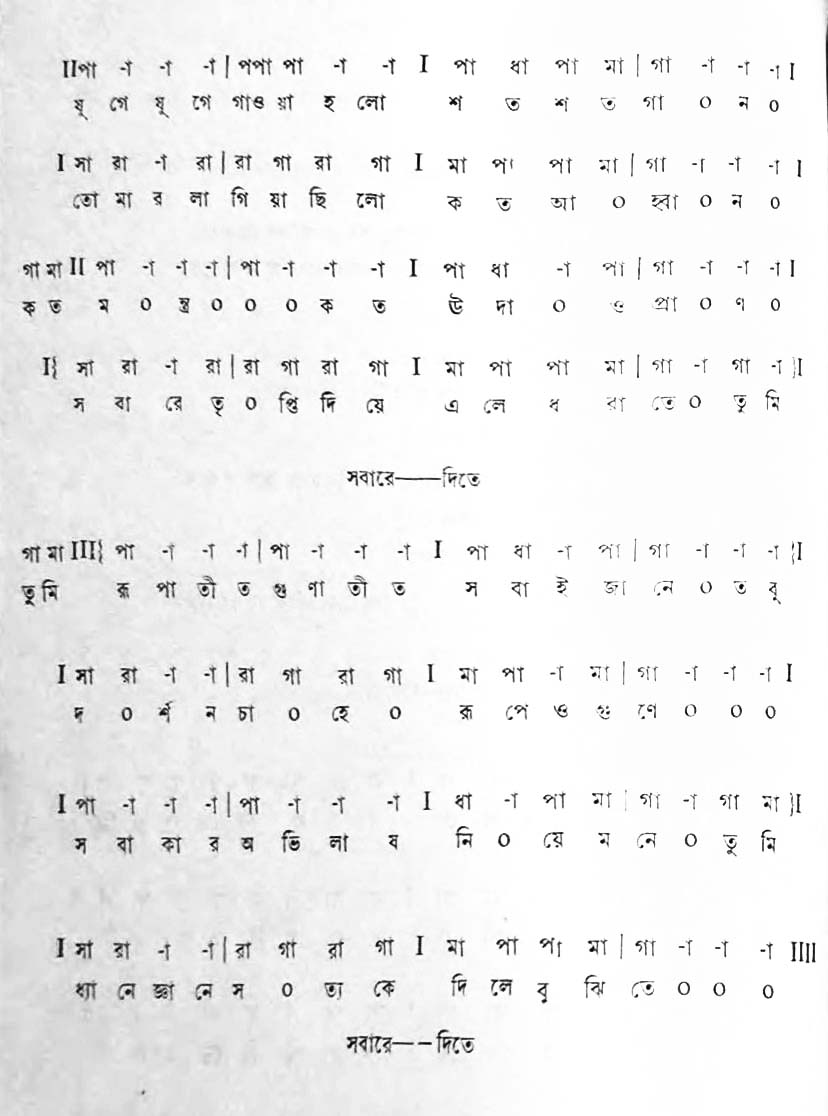 IIপা -া -া -া | পপা পা -া -া I পা ধা পা মা | গা -া -া -া I
যু গে যু গে গাও য়া হ লো শ ত শ ত গা ০ ন ০
I সা রা -া রা | রা গা রা গা I মা পা পা মা | গা -া -া -া I
তো মা র লা গি য়া ছি লো ক ত আ ০ হ্বা ০ ন ০
গা মা II পা -া -া -া | পা -া -া -া I পা ধা -া পা | গা -া -া -া I
ক ত ম ০ ন্ত্র ০ ০ ০ ক ত ঊ দা ০ ও প্রা ০ ণ ০
I{ সা রা -া রা | রা গা রা গা I মা পা পা মা | গা -া গা -া }I
স বা রে তৃ ০ প্তি দি য়ে এ লে ধ রা তে ০ তু মি
সবারে——দিতে
গা মা III{ পা -া -া -া | পা -া -া -া I পা ধা -া পা | গা -া -া -া }I
তু মি রূ পা তী ত গু ণা তী ত স বা ই জা নে ০ ত বু
I সা রা -া -া | রা গা রা গা I মা পা -া মা | গা -া -া -া I
দ ০ র্শ ন চা ০ হে ০ রূ পে ও গু ণে ০ ০ ০
I পা -া -া -া | পা -া -া -া I ধা -া পা মা | গা -া গা মা }I
স বা কা র অ ভি লা ষ নি ০ য়ে ম নে ০ তু মি
I সা রা -া -া | রা গা রা গা I মা পা পা মা | গা -া -া -া IIII
ধ্যা নে জ্ঞা নে স ০ ত্য কে দি লে বু ঝি তে ০ ০ ০
সবারে--দিতে